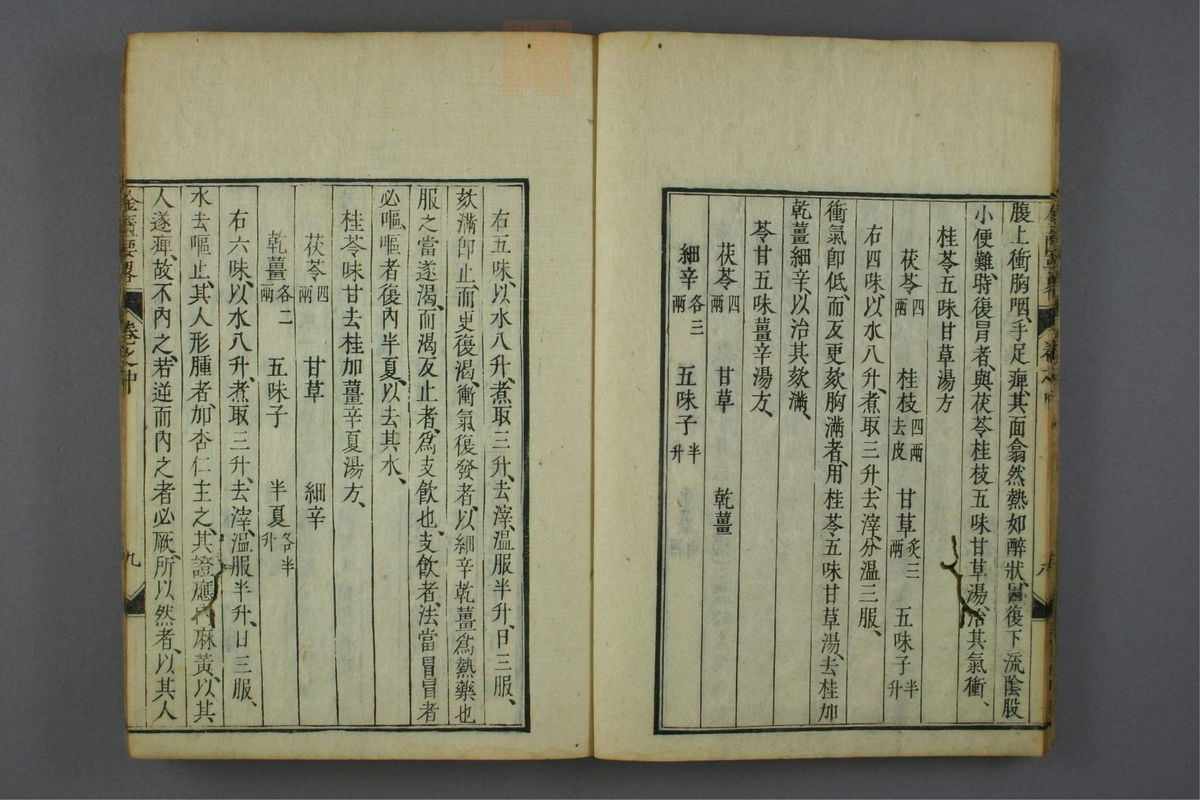 腹上衝胸咽、手足痺、其面翕然熱如醉狀、因復下流陰股、
小便難、時復冒者、與茯苓桂枝五味甘草湯、治其氣衝、
桂苓五味甘草湯方
茯苓四兩 桂枝四兩去皮 甘草炙三兩 五味子半升
右四味、以水八升、煮取三升、去滓、分溫三服、
衝氣即低、而反更欬胸滿者、用桂苓五味甘草湯、去桂加
乾薑細辛、以治其欬滿、
苓甘五味薑辛湯方、
茯苓四兩 甘草 乾薑
細辛各三兩 五味子半升
右五味、以水八升、煮取三升、去滓、溫服半升、日三服、
欬滿即止、而更復渴、衝氣復發者、以細辛乾薑為熱藥也
服之當遂渴、而渴反止者、為支飲也、支飲者、法當冒、冒者
必嘔、嘔者復內半夏、以去其水、
桂苓味甘去桂加薑辛夏湯方、
茯苓四兩 甘草 細辛
乾薑各二兩 五味子 半夏各半升
右六味、以水八升、煮取三升、去滓、溫服半升、日三服、
水去嘔止、其人形腫者、加杏仁主之、其證應內麻黃、以其
人遂痺、故不內之、若逆而內之者必厥、所以然者、以其人
金匱要略 卷之中 九